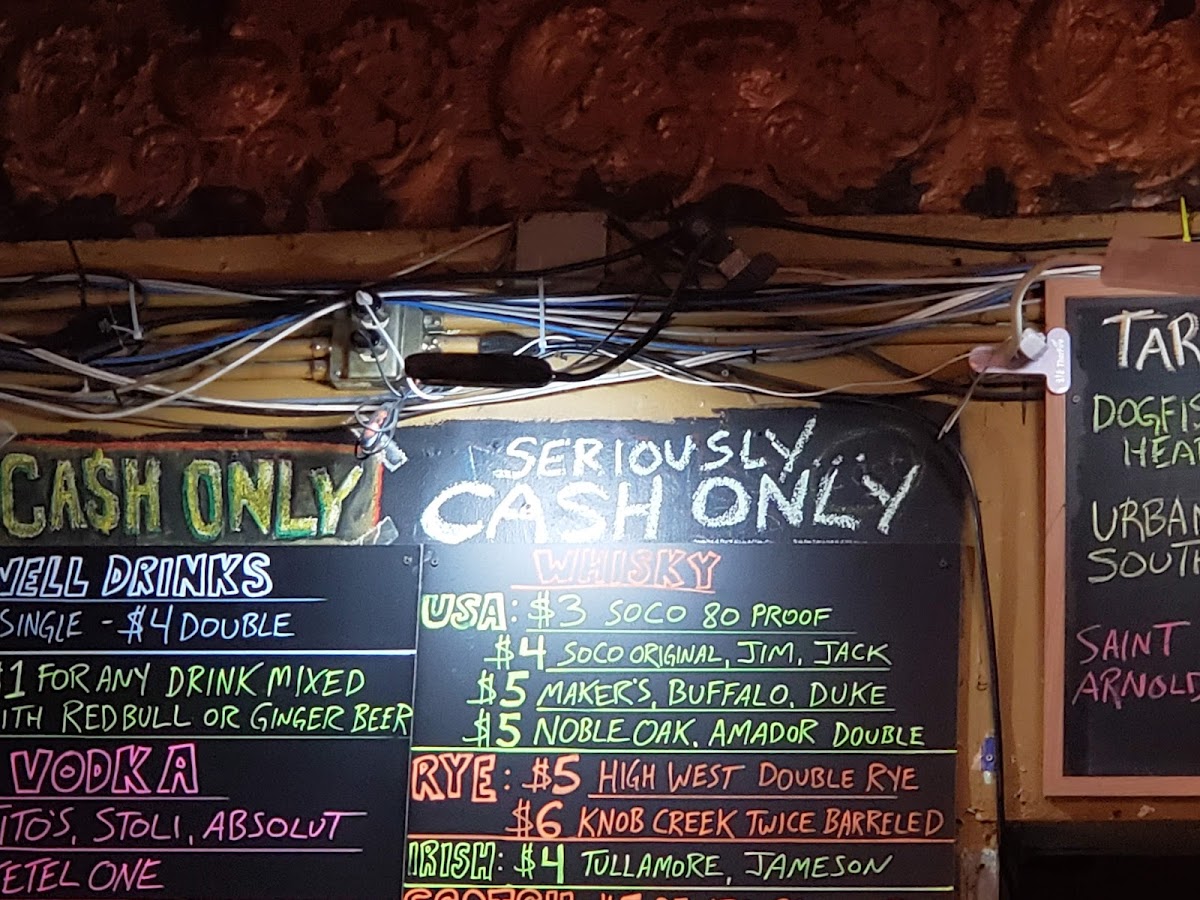 CA$H ONLY
WELL DRINKS
SINGLE - $4 DOUBLE
$1 FOR ANY DRINK MIXED
WITH REDBULL OR GINGER BEER
VODKA
TITO'S, STOLI, ABSOLUT
KETEL ONE
SERIOUSLY...
CASH ONLY
WHISKY
USA: $3 SOCO 80 PROOF
$4 SOCO ORIGINAL, JIM, JACK
$5 MAKER'S, BUFFALO, DUKE
$5 NOBLE OAK, AMADOR DOUBLE
RYE: $5 HIGH WEST DOUBLE RYE
$6 KNOB CREEK TWICE BARRELED
IRISH: $4 TULLAMORE, JAMESON
TAR
DOGFIS
HEA
URBAN
SOUTH
SAINT
ARNOLD